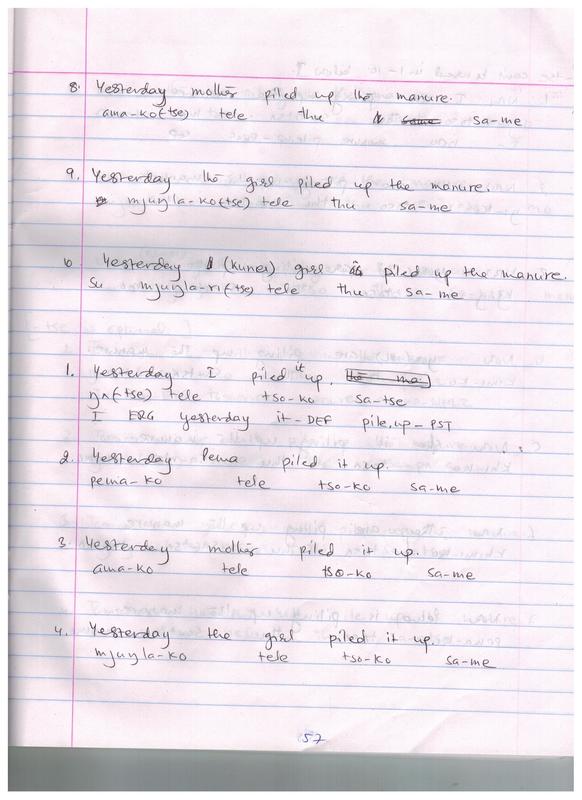 8. Yesterday mother piled up the manure.
ama-ko(tse) tele thu sa-me
9. Yesterday the girl piled up the manure.
mjuŋla-ko(tse) tele thu sa-me
10 Yesterday (kunei) girl piled up the manure.
Su mjuŋla-ri(tse) tele thu sa-me
1. Yesterday I piled it up.
ŋʌ(tse) tele tso-ko sa-tse
I ERG yesterday it-DEF pile.up-PST
2. Yesterday Pema piled it up.
pema-ko tele tso-ko sa-me
3. Yesterday mother piled it up.
ama-ko tele tso-ko sa-me
4. Yesterday the girl piled it up.
mjuŋla-ko tele tso-ko sa-me
57